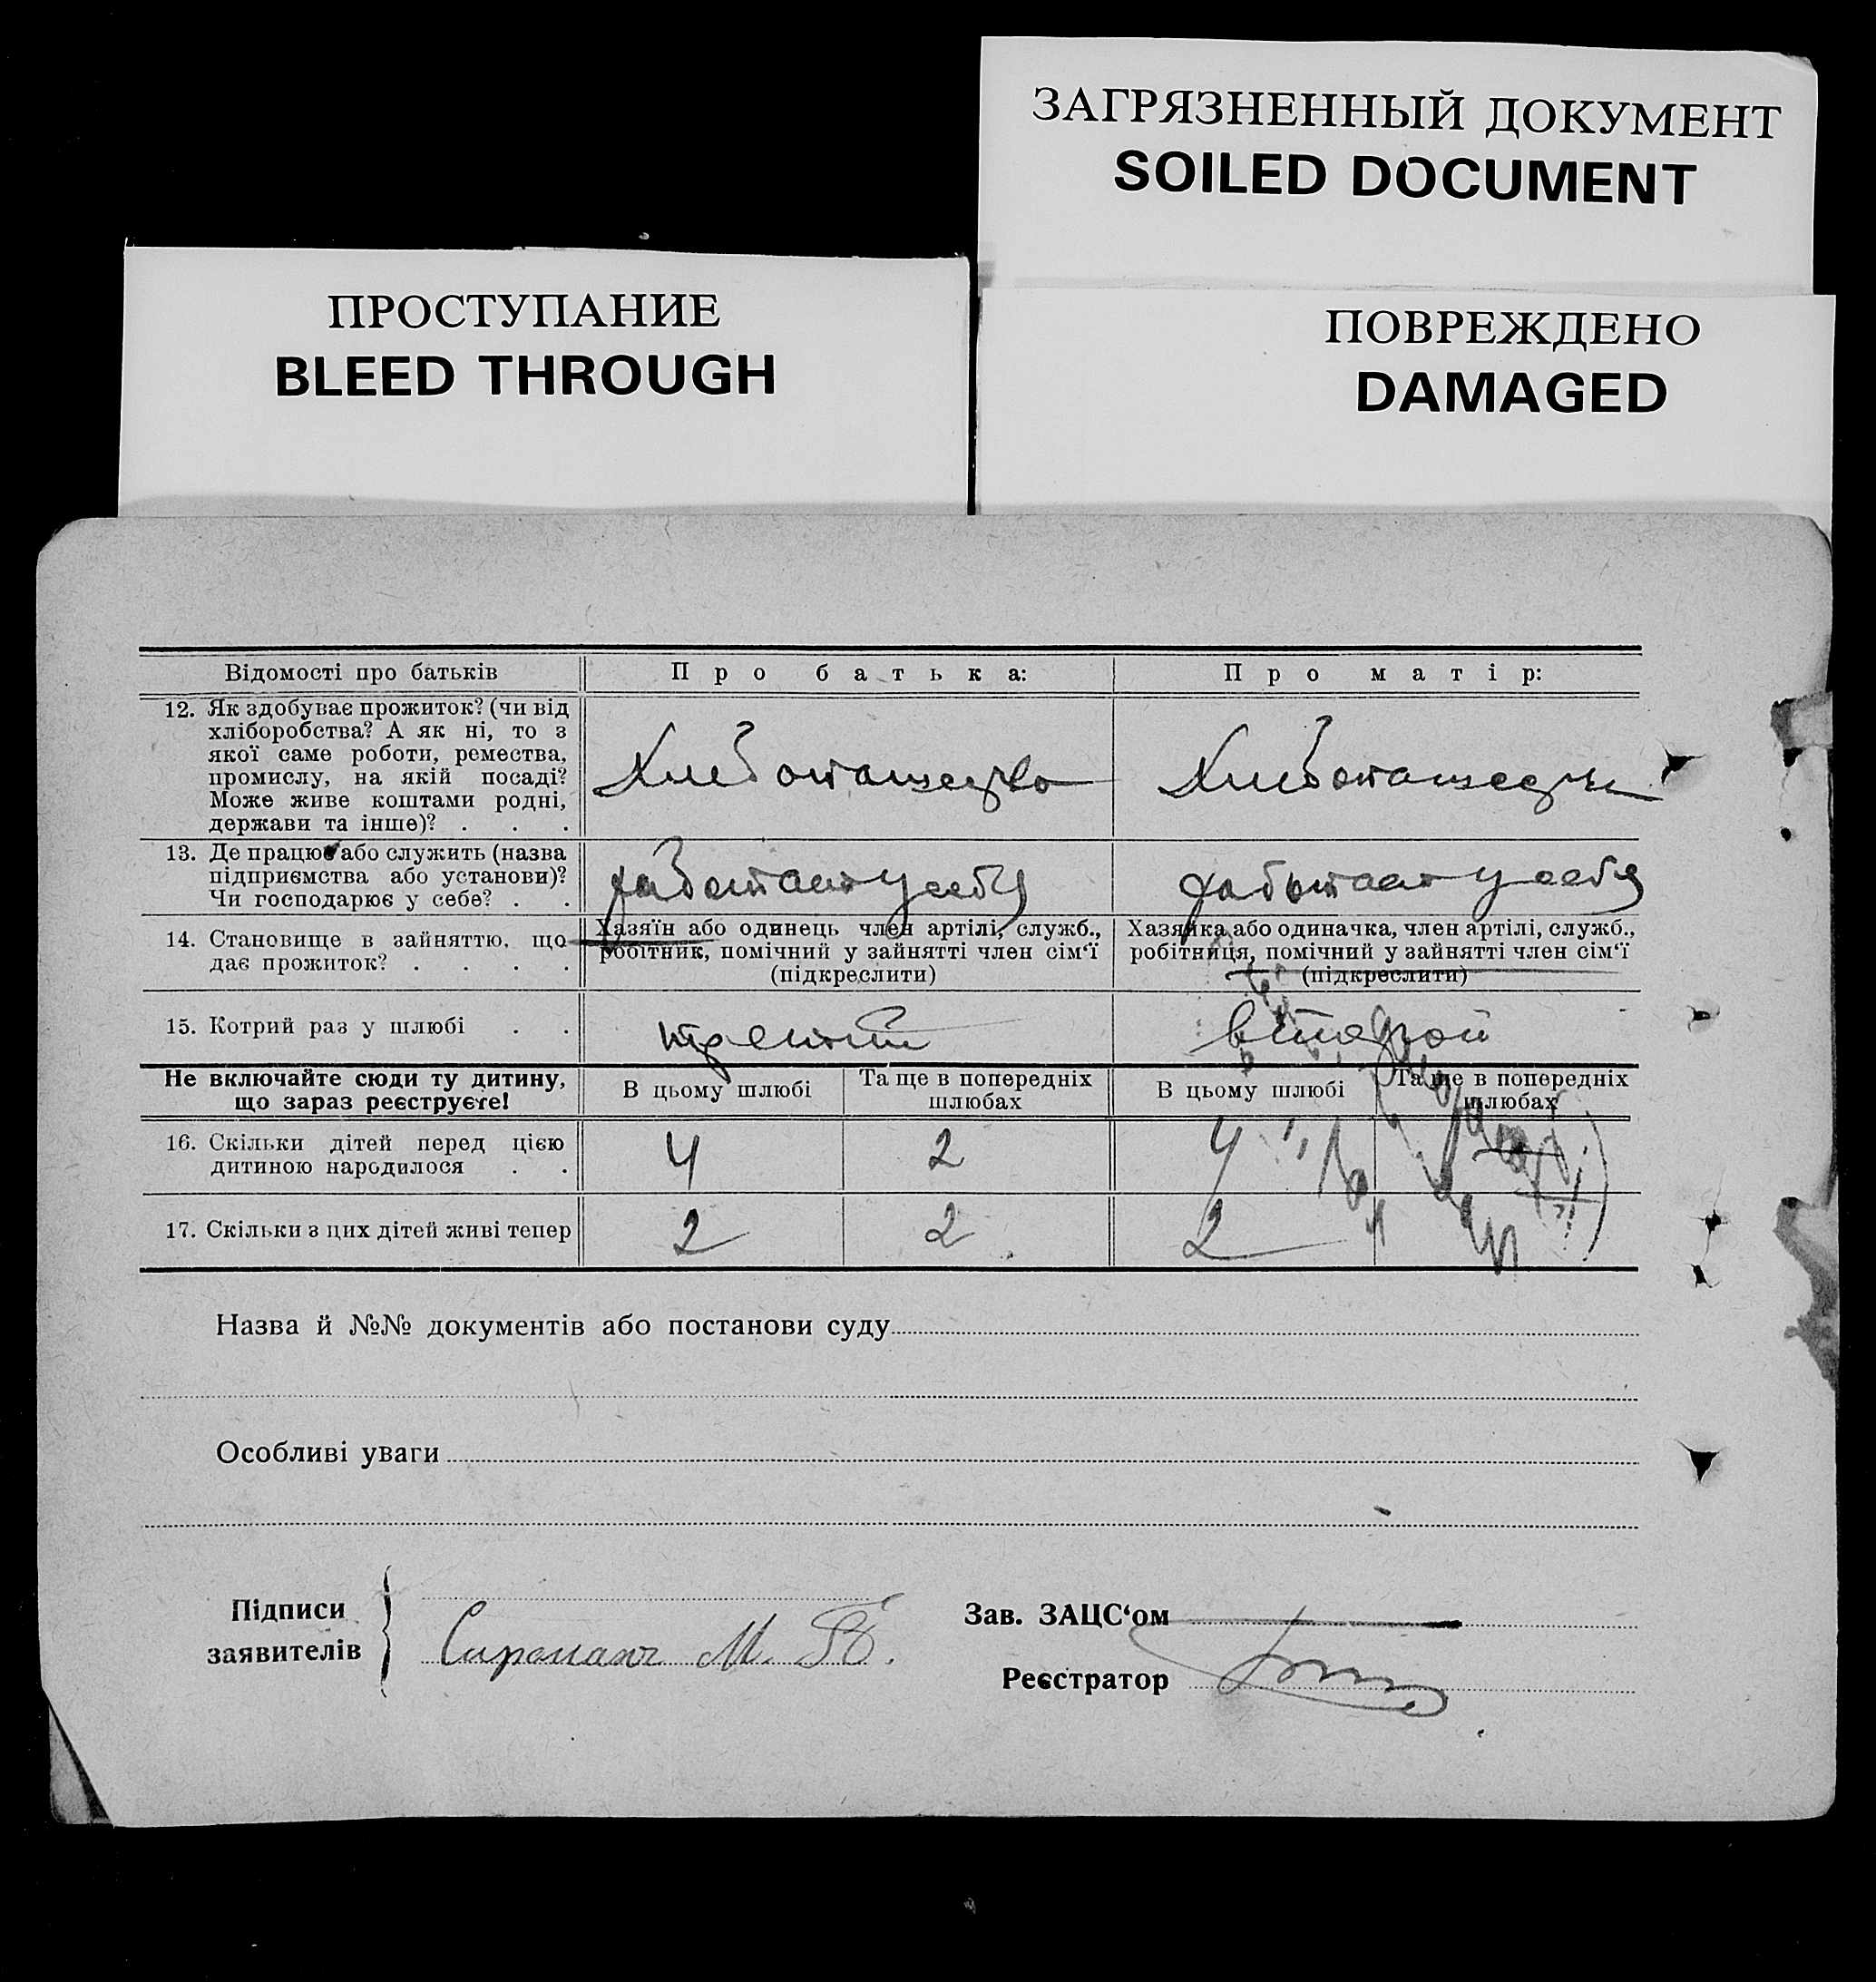 ЗАГРЯЗНЕННЫЙ ДОКУМЕНТ
SOILED DOCUMENT
ПРОСТУПАНИЕ
BLEED THROUGH
ПОВРЕЖДЕНО
DAMAGED
Відомості про батьків
Про батька:
Про матір:
12. Як здобуває прожиток? (чи від
хліборобства? А як ні, то з
якої саме роботи, ремества,
промислу, на якій посаді?
Може живе коштами родні,
держави та інше)? . . .
Хлебопашество
13. Де працює або служить (назва
підприємства або установи)?
Чи господарює у себе? . .
работает у себя
работает у себя
14. Становище в зайняттю, що
дає прожиток? . . . .
Хазяїн або одинець член артілі, служб.,
робітник, помічний у зайнятті член сім‘ї
(підкреслити)
Хазяйка або одиначка, член артілі, служб.,
робітниця, помічний у зайнятті член сім‘ї
(підкреслити)
15. Котрий раз у шлюбі . .
третий
второй
Не включайте сюди ту дитину,
що зараз реєструєте!
В цьому шлюбі
Та ще в попередніх
шлюбах
В цьому шлюбі
Та ще в попередніх
шлюбах
16. Скільки дітей перед цією
дитиною народилося . .
4
2
4
17. Скільки з цих дітей живі тепер
2
2
2
Назва й №№ документів або постанови суду
Особливі уваги
Підписи
заявителів
М.
Зав. ЗАЦС‘ом
Реєстратор